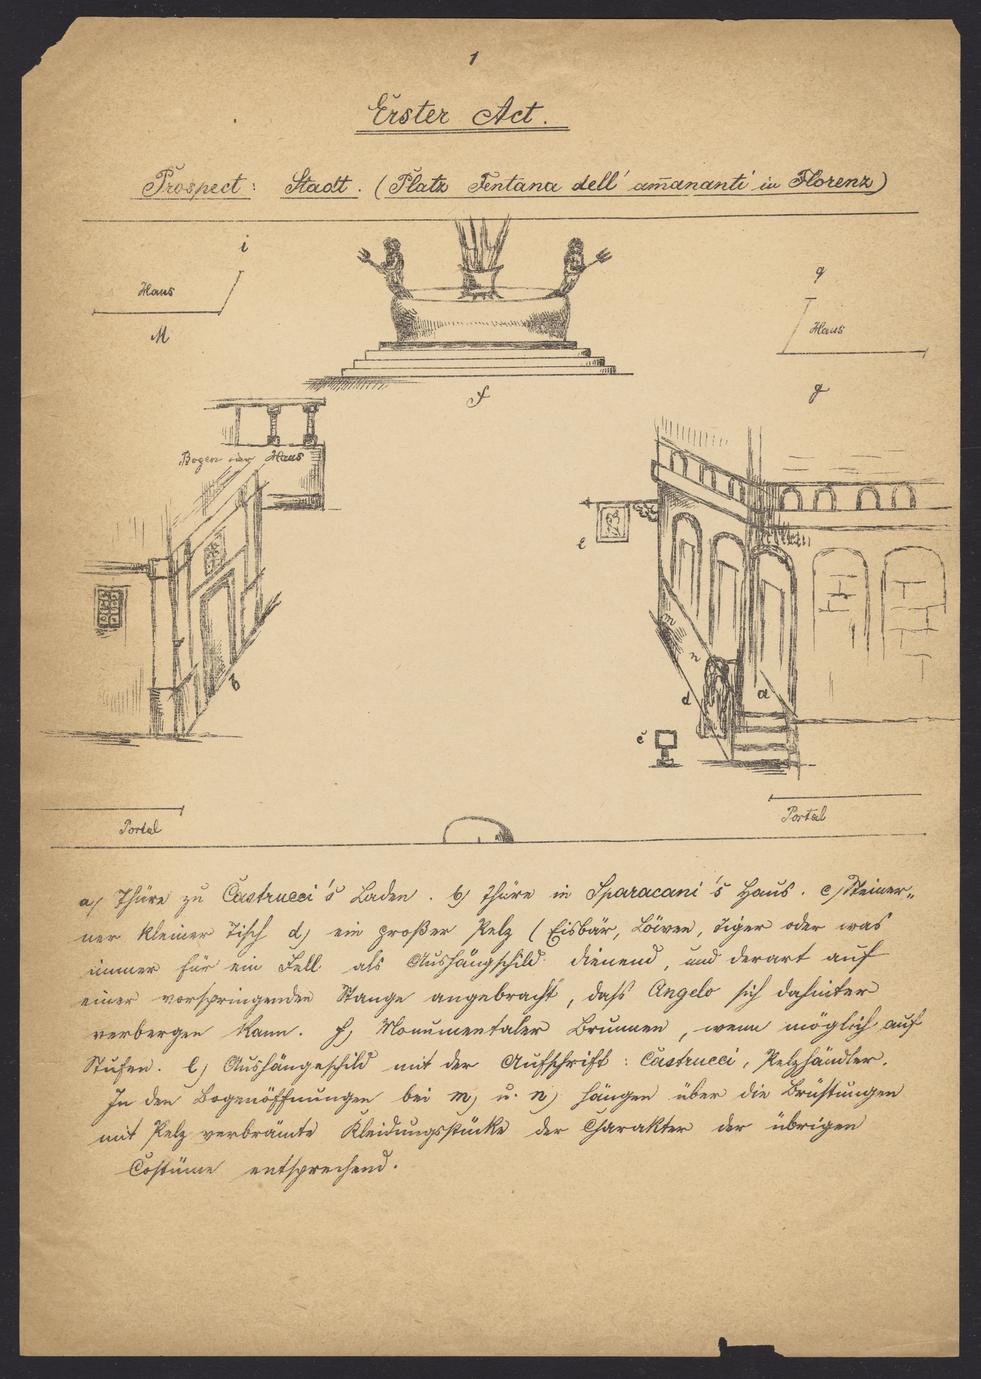 1
Erster Act.
Prospect: Stadt. (Platz Fontana dell' am̄ananti in Florenz)
i
Haus
M
q
Haus
f
g
Bogen Haus
l
m
n
b
d
a
c
Portal
Portal
a) Thüre zu Castrucci's Laden. b) Thüre in Sparacani's Haus. c) Steiner„
ner kleiner Tisch d) ein großer Pelz (Eisbär, Löwen, Tiger oder was
immer für ein Fell als Aushängschild dienend, und derart auf
einer vorspringenden Stange angebracht, daß Angelo sich dahinter
verbergen kann. f) Monumentaler Brunnen, wenn möglich auf
Stufen. l) Aushängeschild mit der Aufschrift: Castrucci, Pelzhändler.
In den Bogenöffnungen bei m) u. n) hängen über die Brüstungen
mit Pelz verbrämte Kleidungsstücke der Charakter der übrigen
Costüme entsprechend.